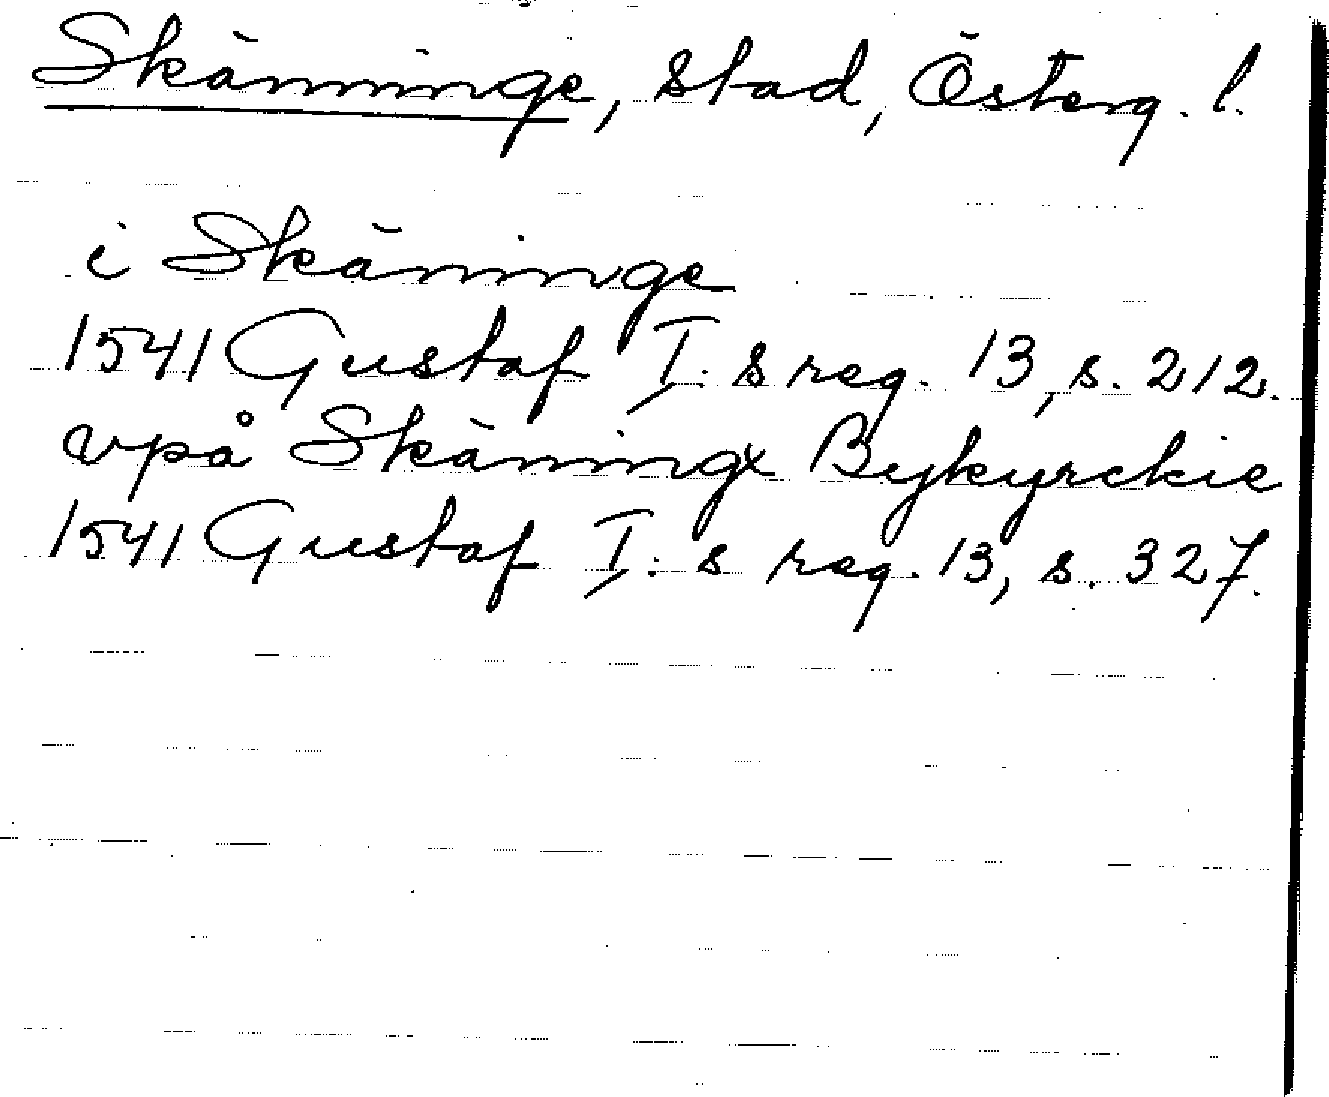 Skänninge, stad, Österg. l.
i Skäninge
1541 Gustaf I:s reg. 13, s. 212.
vpå Skäningx Bykyrckie
1541 Gustaf I:s reg. 13, s. 327.